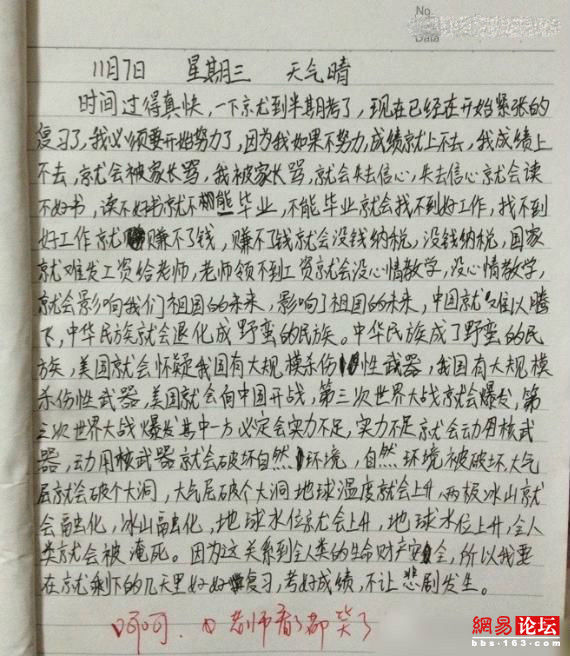 No.
Data
11月7日 星期三 天气晴
时间过得真快,一下就到半期考了,现在已经在开始紧张的
复习了,我必须要开始努力了,因为我如果不努力,成绩就上不去,我成绩上
不去,就会被家长骂,我被家长骂,就会失去信心,失去信心就会读
不好书,读不好书就不能毕业,不能毕业就会找不到好工作,找不到
好工作就赚不了钱,赚不了钱就会没钱纳税,没钱纳税,国家
就难发工资给老师,老师领不到工资就会没心情教学,没心情教学,
就会影响我们祖国的未来,影响了祖国的未来,中国就难以腾
飞,中华民族就会退化成野蛮的民族。中华民族成了野蛮的民
族,美国就会怀疑我国有大规模杀伤性武器,我国有大规模
杀伤性武器,美国就会向中国开战,第三次世界大战就会爆发,第
三次世界大战爆发其中一方必定会实力不足,实力不足就会动用核武
器,动用核武器就会破坏自然环境,自然环境被破坏,大气
层就会破个大洞,大气层破个大洞地球温度就会上升,两极冰山就
会融化,冰山融化,地球水位就会上升,地球水位上升,全人
类就会被淹死。因为这关系到全人类的生命财产安全,所以我要
在就剩下的几天里好好复习,考好成绩,不让悲剧发生。
呵呵,老师看了都笑了
网易论坛
bbs.163.com